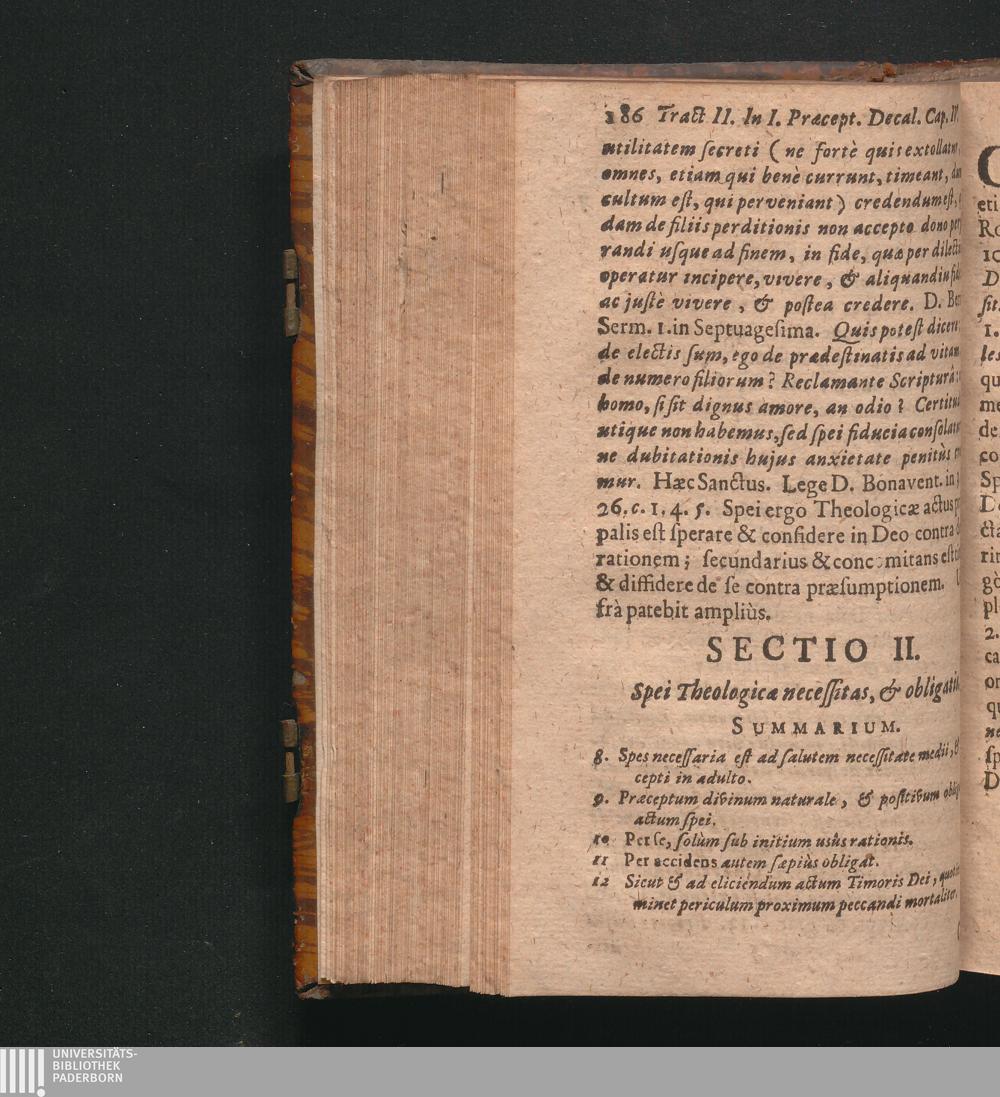 186 Tract II. In I. Præcept. Decal. Cap. IV
utilitatem ſecreti ( ne fortè quis extollatur,
omnes, etiam qui benè currunt, timeant,
cultum eſt, qui perveniant ) credendum eſt,
dam de filiis perditionis non accepto dono
randi uſque ad finem, in fide, quæ per
operatur incipere, vivere, & aliquandiu
ac juſtè vivere, & poſtea credere. D. Ber
Serm. 1. in Septuageſima. Quis poteſt dicere:
de electis ſum, ego de prædeſtinatis ad vitam
de numero filiorum? Reclamante Scriptura:
homo, ſi ſit dignus amore, an odio? Certitu
utique non habemus, ſed ſpei fiducia
ne dubitationis hujus anxietate penitùs
mur. Hæc Sanctus. Lege D. Bonavent. in
26. c. 1. 4. 5. Spei ergo Theologicæ actus
palis eſt ſperare & confidere in Deo contra
rationem; ſecundarius & concomitans eſt
& diffidere de ſe contra præſumptionem.
frà patebit ampliùs.
SECTIO II.
Spei Theologicæ neceſſitas, & obligati
SUMMARIUM.
8. Spes neceſſaria eſt ad ſalutem neceſſitate medii,
cepti in adulto.
9. Præceptum divinum naturale, & poſitivum
actum ſpei.
10 Per ſe, ſolùm ſub initium usûs rationis.
11 Per accidens autem ſæpiùs obligat.
12 Sicut & ad eliciendum actum Timoris Dei,
minet periculum proximum peccandi mortaliter.
C
eti
Ro
10
D
ſit
1.
leſ
qu
me
de
co
Sp
De
cta
rin
gò
pl
2.
ca
or
qu
ne
ſp
D
UNIVERSITÄTS-
BIBLIOTHEK
PADERBORN